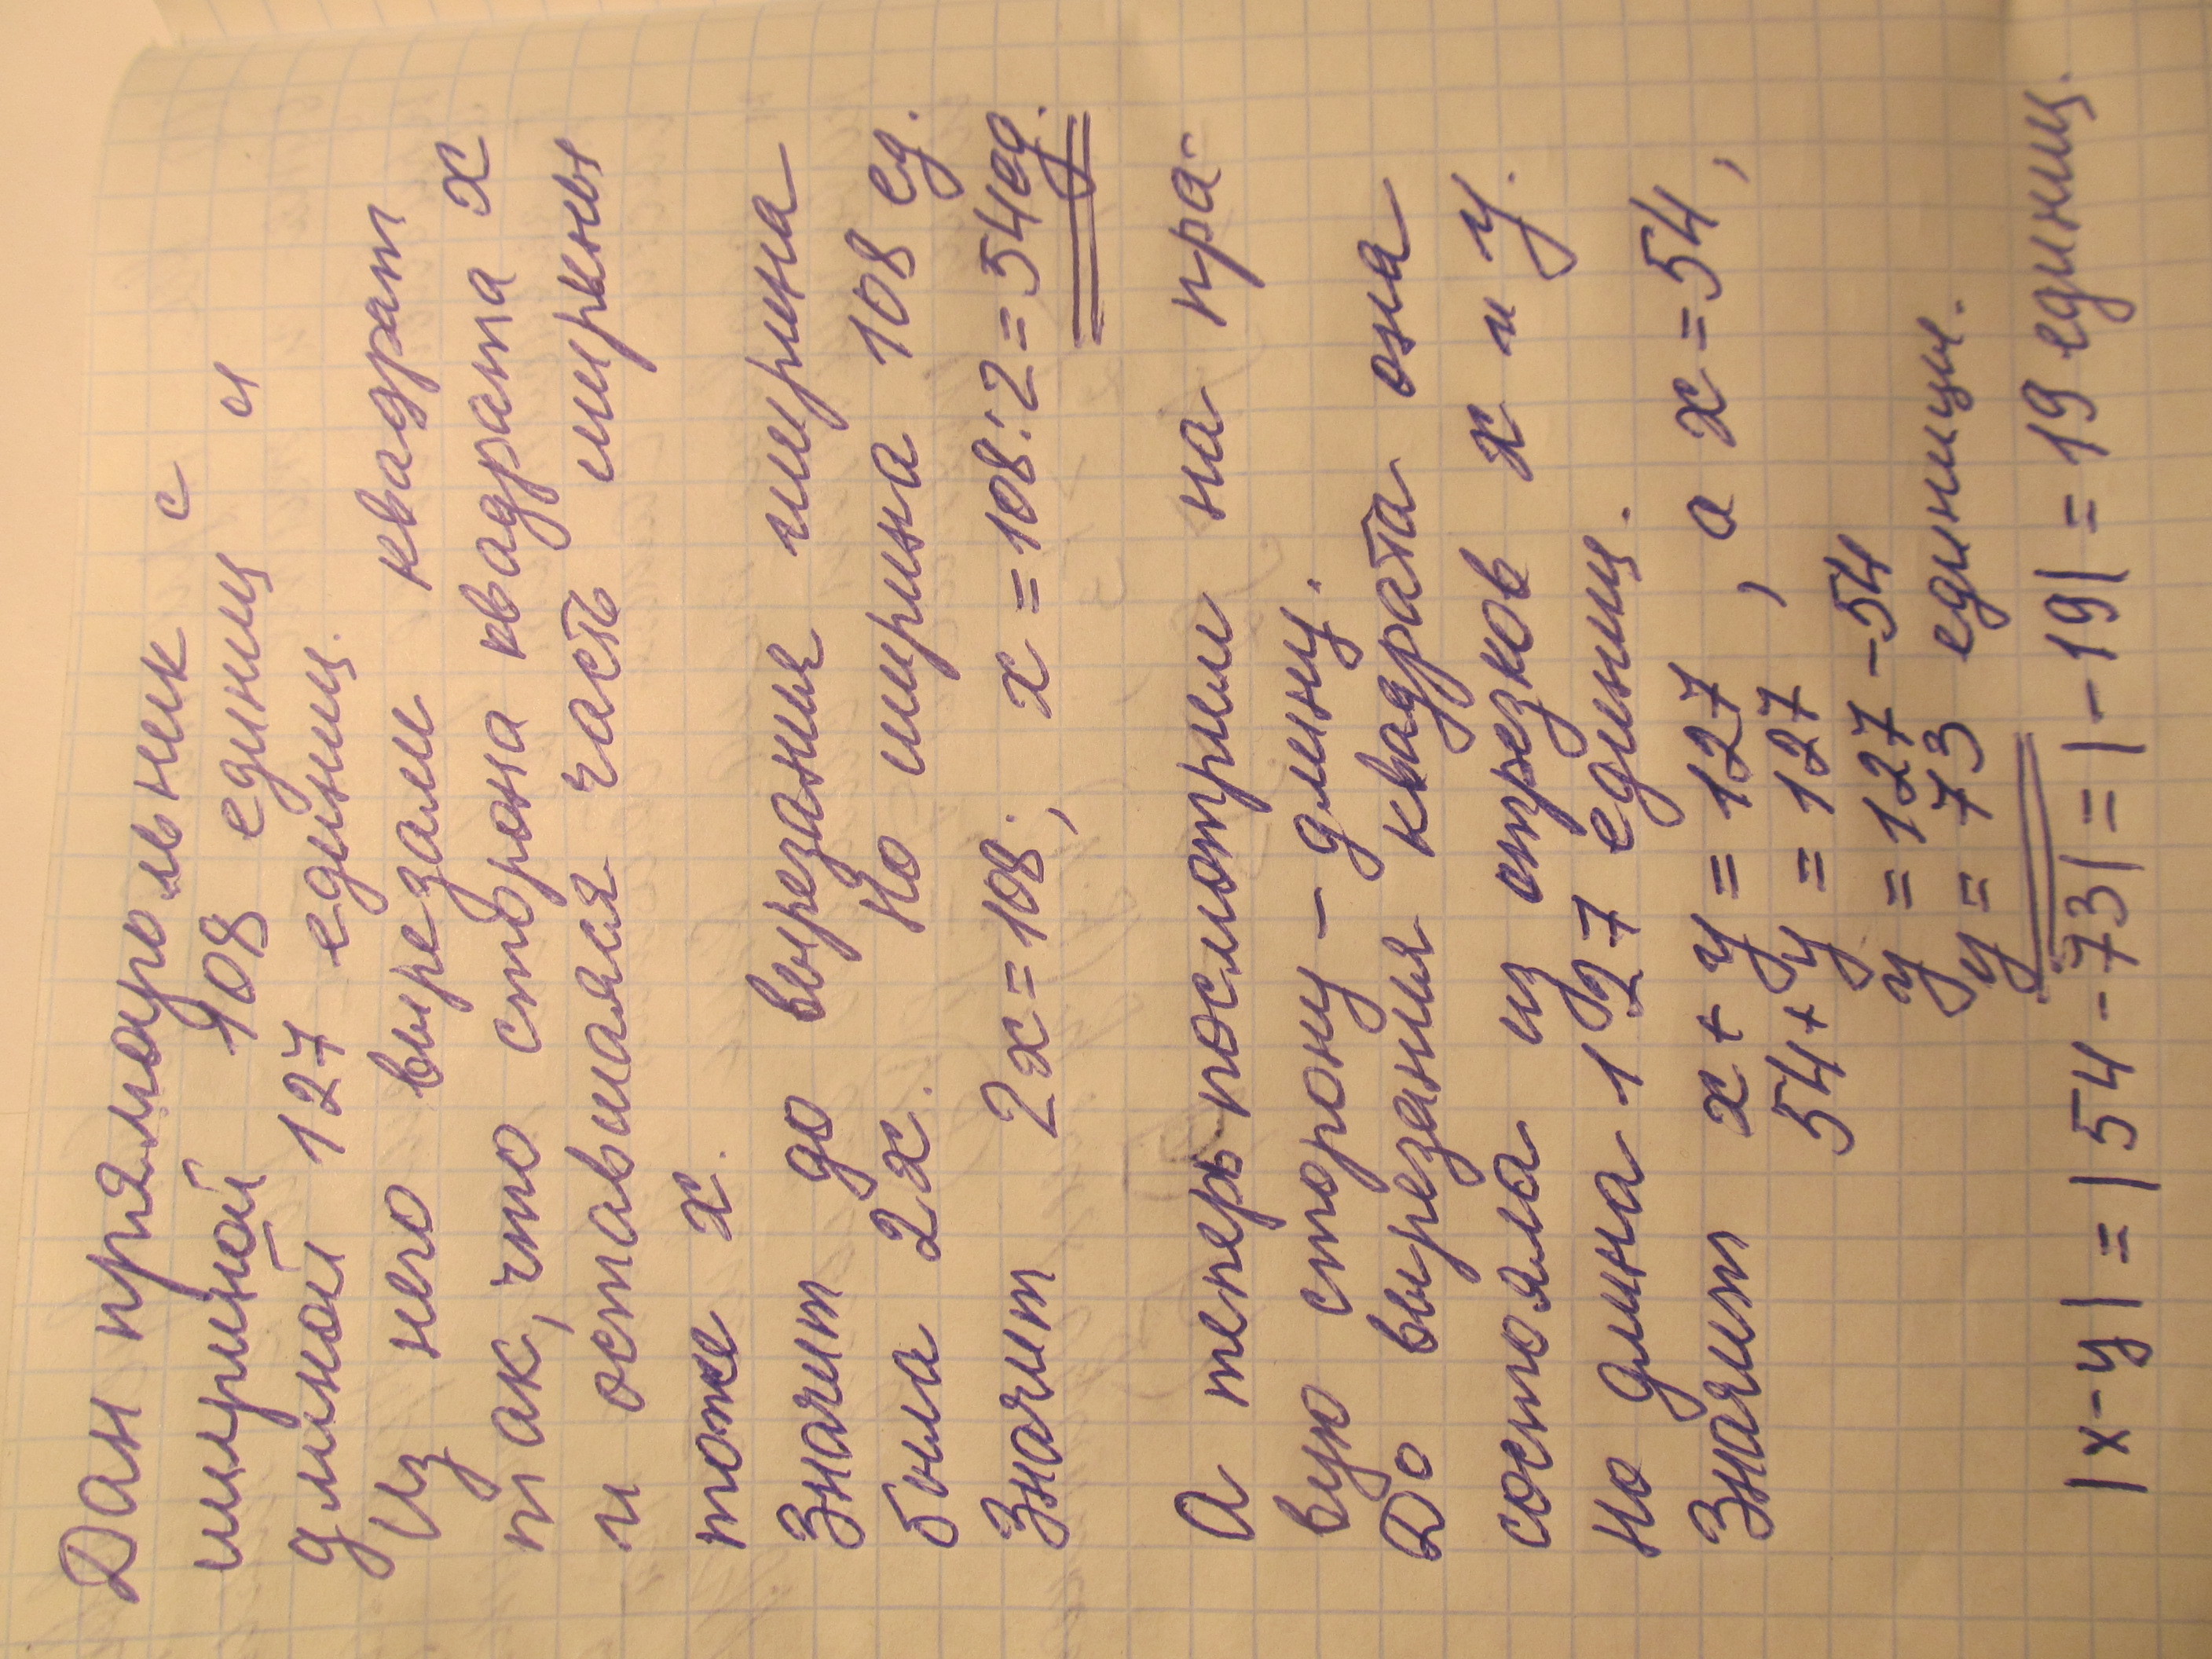 Дан прямоугольник с
шириной 108 единиц и
длиной 127 единиц.
Из него вырезали квадрат
так, что сторона квадрата x
и оставшаяся часть ширины
тоже x.
Значит до вырезания ширина
была 2x. Но ширина 108 ед.
Значит 2x=108; x=108:2=54ед.
А теперь посмотрим на пра-
вую сторону - длину.
До вырезания квадрата она
состояла из отрезков x и y.
Но длина 127 единиц.
Значит x+y=127, а x=54,
54+y=127
y=127-54
y=73 единицы.
|x-y|=|54-73|=|-19|=19 единиц.